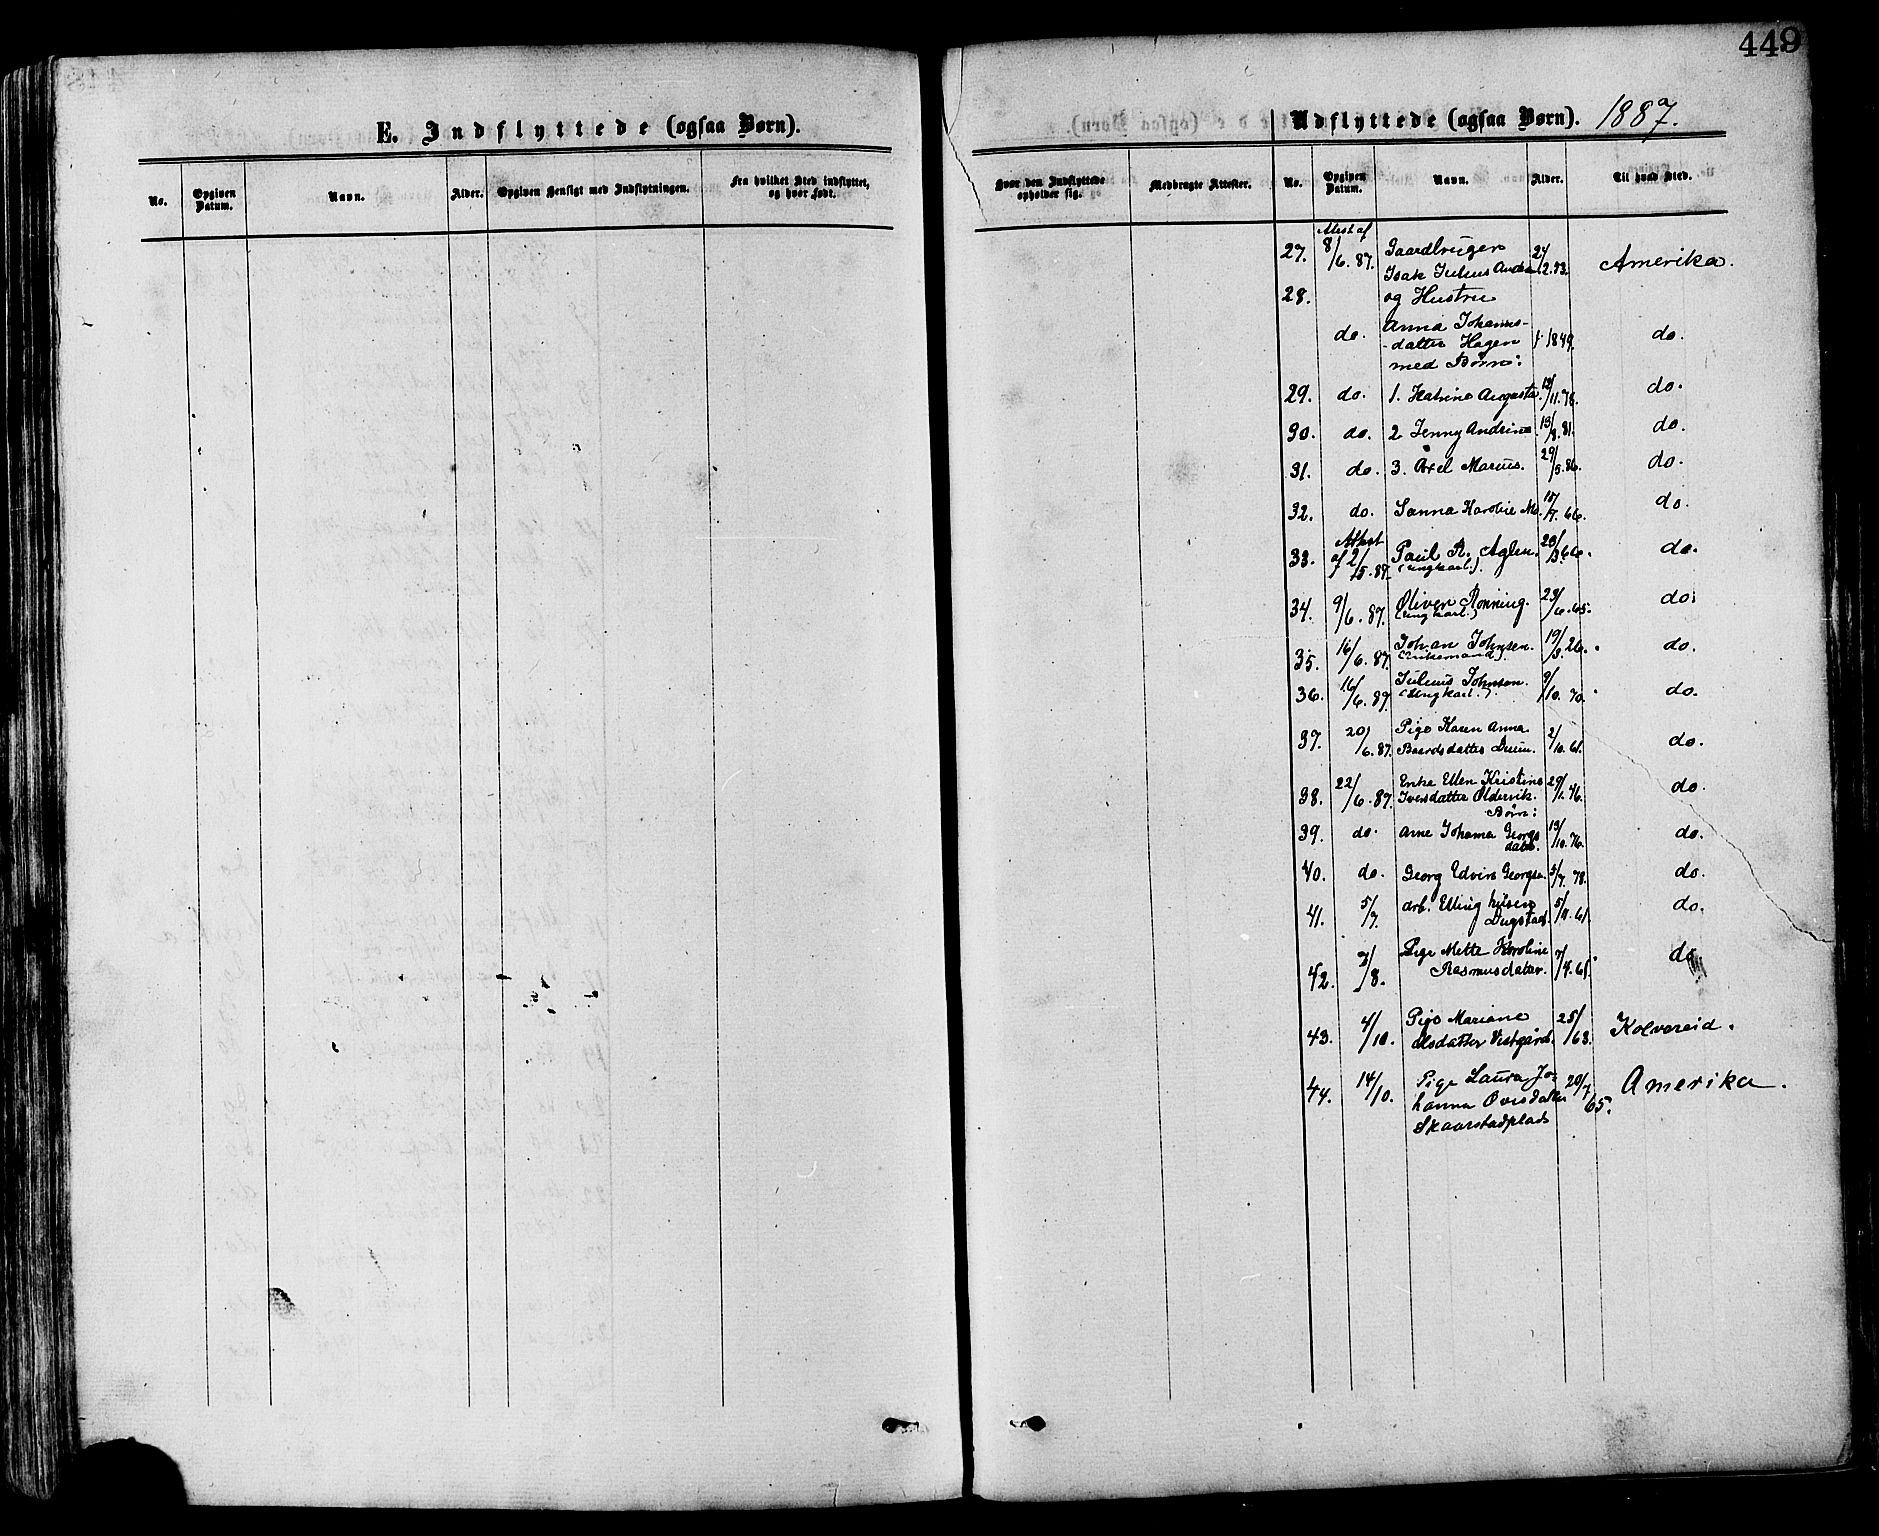 449
E. Indflyttede (ogsaa Børn).
No.
Opgiven Datum.
Navn.
Alder.
Opgiven Hensigt med Indflytningen.
Fra hvilket Sted indflyttet, og hvor født.
Udflyttede (ogsaa Børn). 1887.
Hvor den Indflyttede opholder sig.
Medbragte Attester.
No.
Opgiven Datum.
Navn.
Alder.
Til hvad Sted.
Attest af
27. 8/6. 87. Gaardbruger
Isak Julius 24/12.53. Amerika.
28. og Hustru
do. Anna Johannes-
datter Hagen 1849. do.
med Børn:
29. do. 1. Katrine Augusta /11.78. do.
30. do. 2 Jenny Andrine 13/8.81. do.
31. do. 3. Axel Marius. 29/5.86. do.
32. do. Sanna Karolie Mo. /7.66. do.
Attest
33. af 2/5.87. Paul R. Aglen. 20/3.66. do.
(Ungkarl.)
34. 9/6. 87. Oliver Rønning. 23/6.65. do.
(Ungkarl.)
35. 16/6. 87. Johan Johnsen. 19/3.26. do.
(Enkemand).
36. 16/6. 87. Julius Johnson. 9/10.70. do.
(Ungkarl.)
37. 20/6. 87. Pige Karen Anna
Baardsdatter Duun. 2/10.61. do.
38. 22/6. 87. Enke Ellen Kristine 29/1.46. do.
Iversdatter Oldervik.
Børn:
39. do. Arne Johanna Georgs 13/10.76. do.
datter.
40. do. Georg Edvin Georgsen. 5/7.78. do.
41. 5/7 arb. Elling 5/11.61. do.
42. 2/8. Pige Mette Karoline 7/4.61. do.
Rasmusdatter.
43. 4/10. Pige Mariane 25/ 68. Kolvereid.
Olsdatter Vestgård.
44. 14/10. Pige Laura Jo- 20/7 65. Amerika.
hanna Ovesdatter
Skaarstadplads